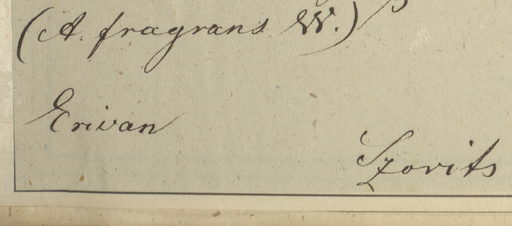 (A. fragrans W.)
Erivan
Szovits